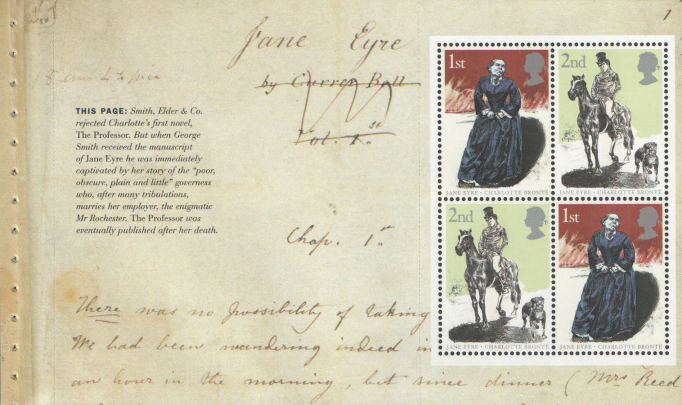 1
Jane Eyre
by Currer Bell
Vol. 1.st
THIS PAGE: Smith, Elder & Co.
rejected Charlotte's first novel,
The Professor. But when George
Smith received the manuscript
of Jane Eyre he was immediately
captivated by her story of the “poor,
obscure, plain and little” governess
who, after many tribulations,
marries her employer, the enigmatic
Mr Rochester. The Professor was
eventually published after her death.
Chap. 1.st
There was no possibility of taking
We had been wandering indeed in
an hour in the morning, but since dinner (Mrs Reed
1st
JANE EYRE • CHARLOTTE BRONTË
2nd
JANE EYRE • CHARLOTTE BRONTË
2nd
JANE EYRE • CHARLOTTE BRONTË
1st
JANE EYRE • CHARLOTTE BRONTË